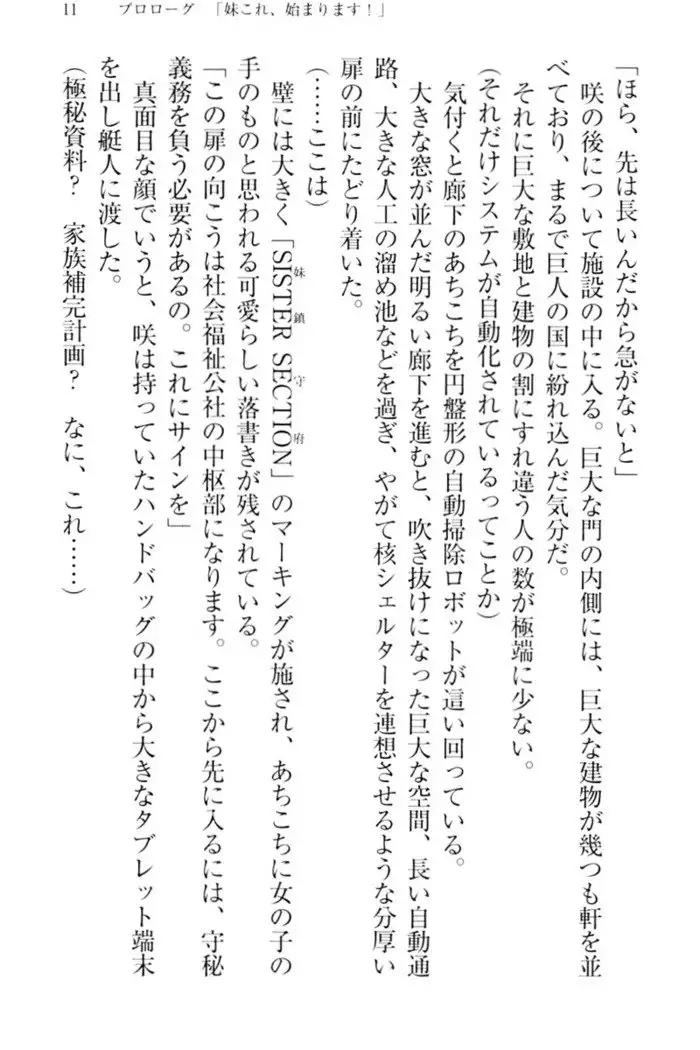 11　プロローグ　「妹これ、始まります！」
「ほら、先は長いんだから急がないと」
　咲の後について施設の中に入る。巨大な門の内側には、巨大な建物が幾つも軒を並
べており、まるで巨人の国に紛れ込んだ気分だ。
　それに巨大な敷地と建物の割にすれ違う人の数が極端に少ない。
（それだけシステムが自動化されているってことか）
　気付くと廊下のあちこちを円盤形の自動掃除ロボットが這い回っている。
　大きな窓が並んだ明るい廊下を進むと、吹き抜けになった巨大な空間、長い自動通
路、大きな人工の溜め池などを過ぎ、やがて核シェルターを連想させるような分厚い
扉の前にたどり着いた。
（……ここは）
　壁には大きく「SISTER SECTION」のマーキングが施され、あちこちに女の子の
妹鎮守府
手のものと思われる可愛らしい落書きが残されている。
「この扉の向こうは社会福祉公社の中枢部になります。ここから先に入るには、守秘
義務を負う必要があるの。これにサインを」
　真面目な顔でいうと、咲は持っていたハンドバッグの中から大きなタブレット端末
を出し艇人に渡した。
（極秘資料？　家族補完計画？　なに、これ……）